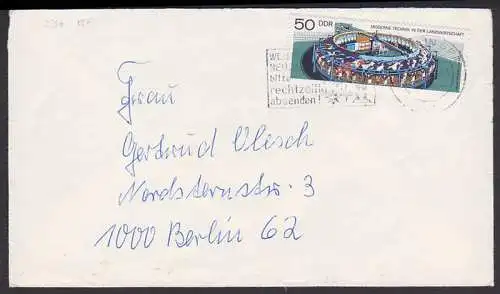 50 DDR MODERNE TECHNIK IN DER LANDWIRTSCHAFT
rechtzeitig
absenden!
Frau
Gertrud Olesch
Nordsternstr. 3
1000 Berlin 62